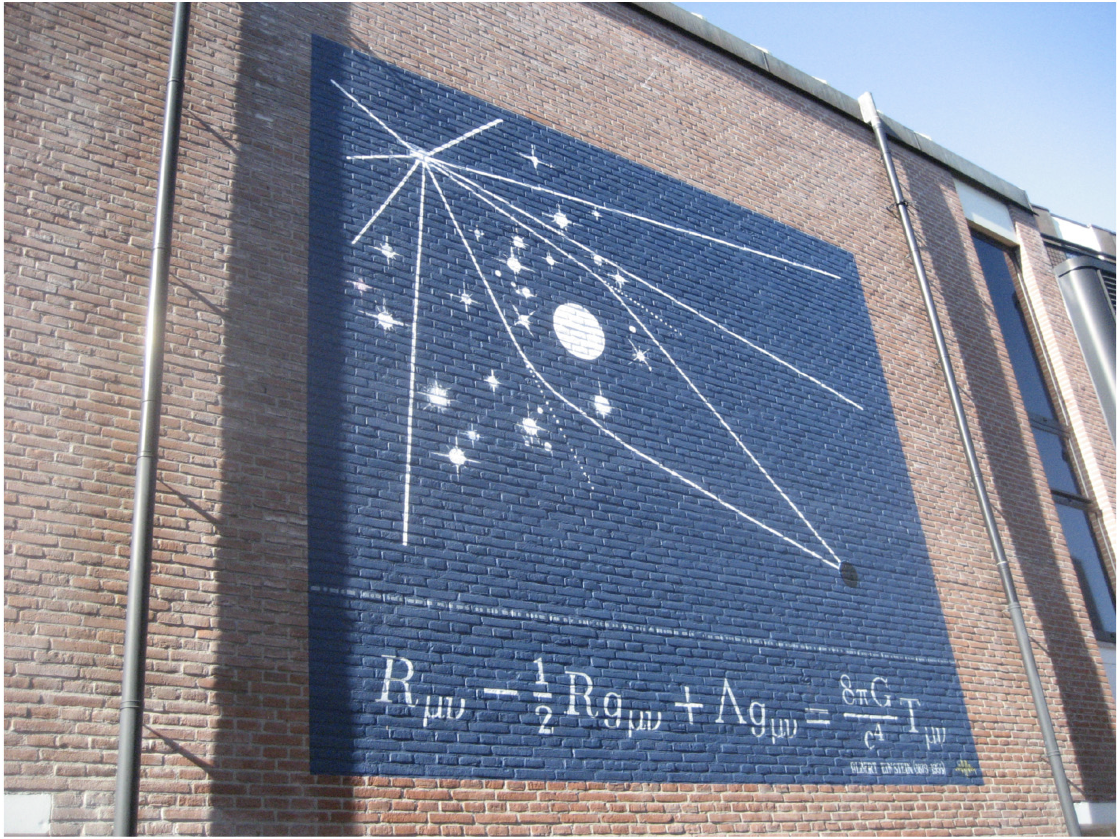 Rμν − 1/2 Rgμν + Λgμν = 8πG/c⁴ Tμν
ALBERT EINSTEIN (1879-1955)